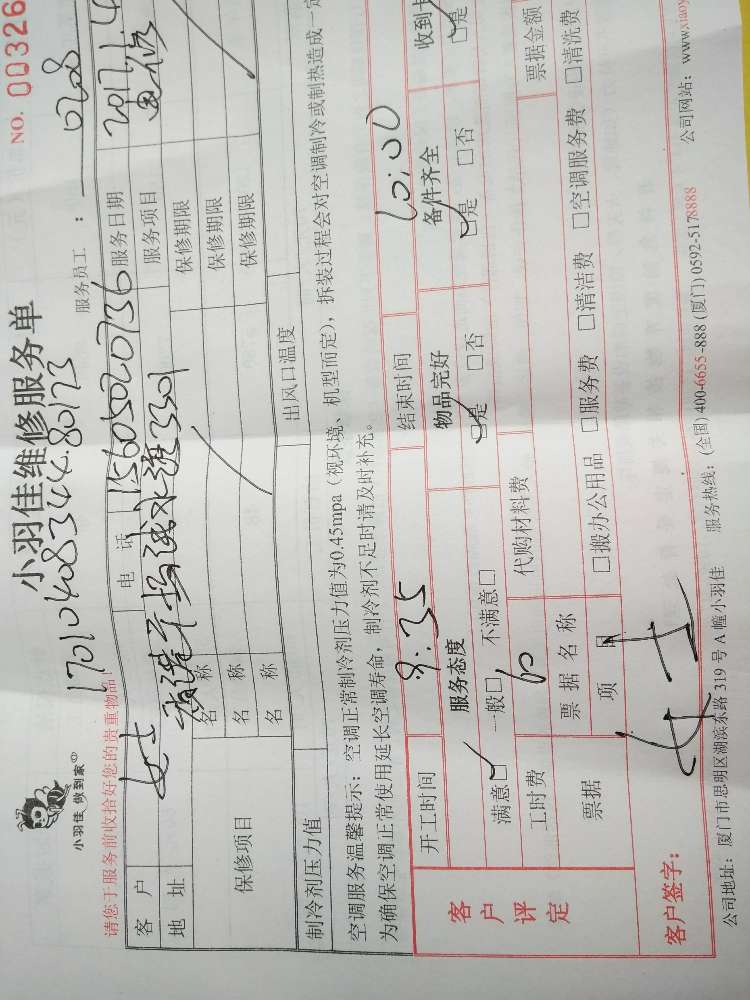 小羽佳维修服务单
NO. 00326
17010408344480173
服务员工：0728
小羽佳 做到家
请您于服务前收拾好您的贵重物品！
客户 女士 电话 15605020736 服务日期 2017.1.4
地址 3301 服务项目
保修项目 名称 保修期限
名称 保修期限
名称 保修期限
制冷剂压力值 出风口温度
空调服务温馨提示：空调正常制冷剂压力值为0.45mpa（视环境、机型而定），拆装过程会对空调制冷或制热造成一定
为确保空调正常使用延长空调寿命，制冷剂不足时请及时补充。
客户评定
开工时间 9:35 结束时间 10:00
服务态度 物品完好 备件齐全 收到
满意☑ 一般□ 不满意□ ☑是 □否 ☑是 □否 ☑是
工时费 60 代购材料费 票据金额
票据 票据名称
项目 □搬办公用品 □服务费 □清洁费 □空调服务费 □清洗费
客户签字： 女士
公司地址：厦门市思明区湖滨东路 319 号 A 幢小羽佳 服务热线：(全国) 400-6655-888 (厦门) 0592-5178888 公司网站：www.xiaoy